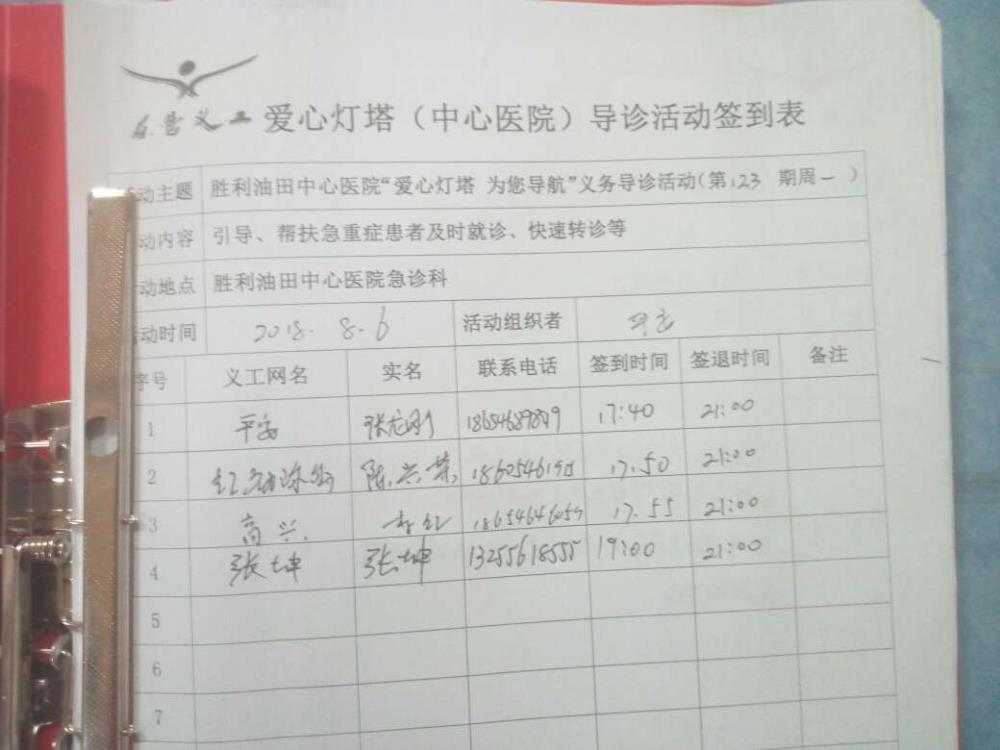 东营义工 爱心灯塔（中心医院）导诊活动签到表
动主题 胜利油田中心医院“爱心灯塔 为您导航”义务导诊活动（第123 期周一 ）
动内容 引导、帮扶急重症患者及时就诊、快速转诊等
动地点 胜利油田中心医院急诊科
动时间 2018.8.6 活动组织者
序号 义工网名 实名 联系电话 签到时间 签退时间 备注
1 平安 张龙刚 17:40 21:00
2 陈兴荣 17.50 21:00
3 高兴 李红 17.55 21:00
4 张坤 张坤 13255618555 19:00 21:00
5
6
7